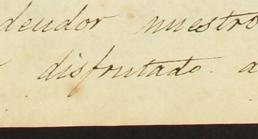 deudor nuestro
disfrutado a